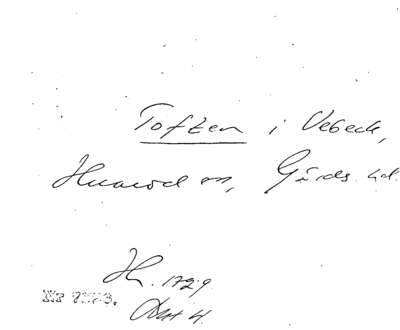 Toften i Vebeck,
Huaröd sn, Gärds hd.
H. 1729
Nr 7373.
Akt 4.